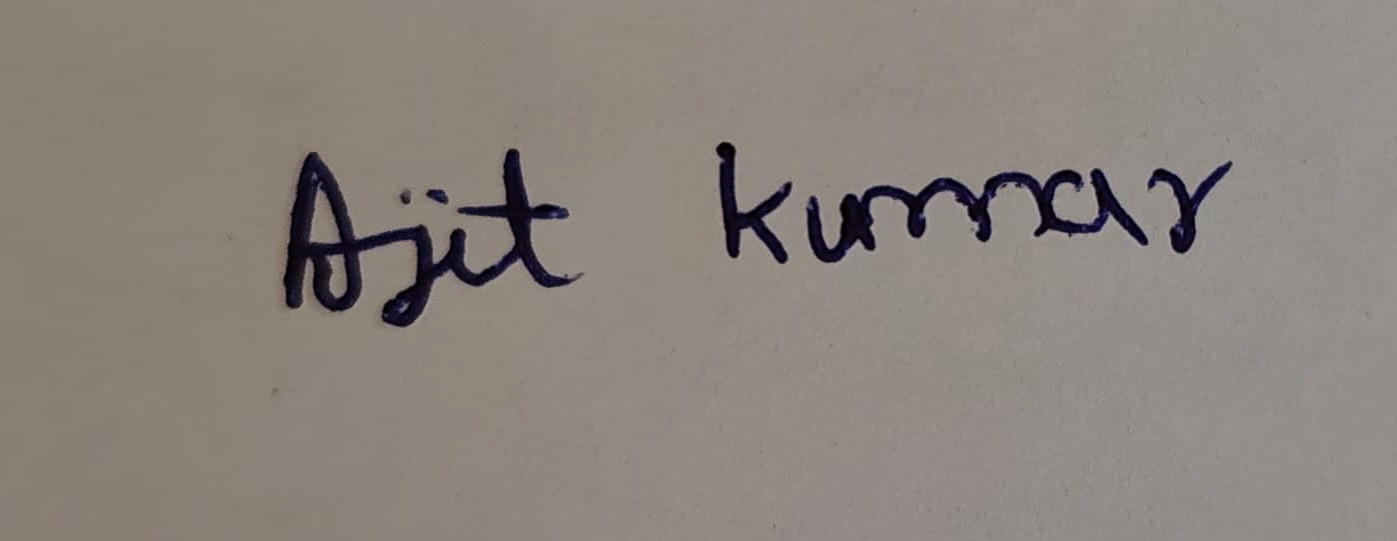 Ajit kumar